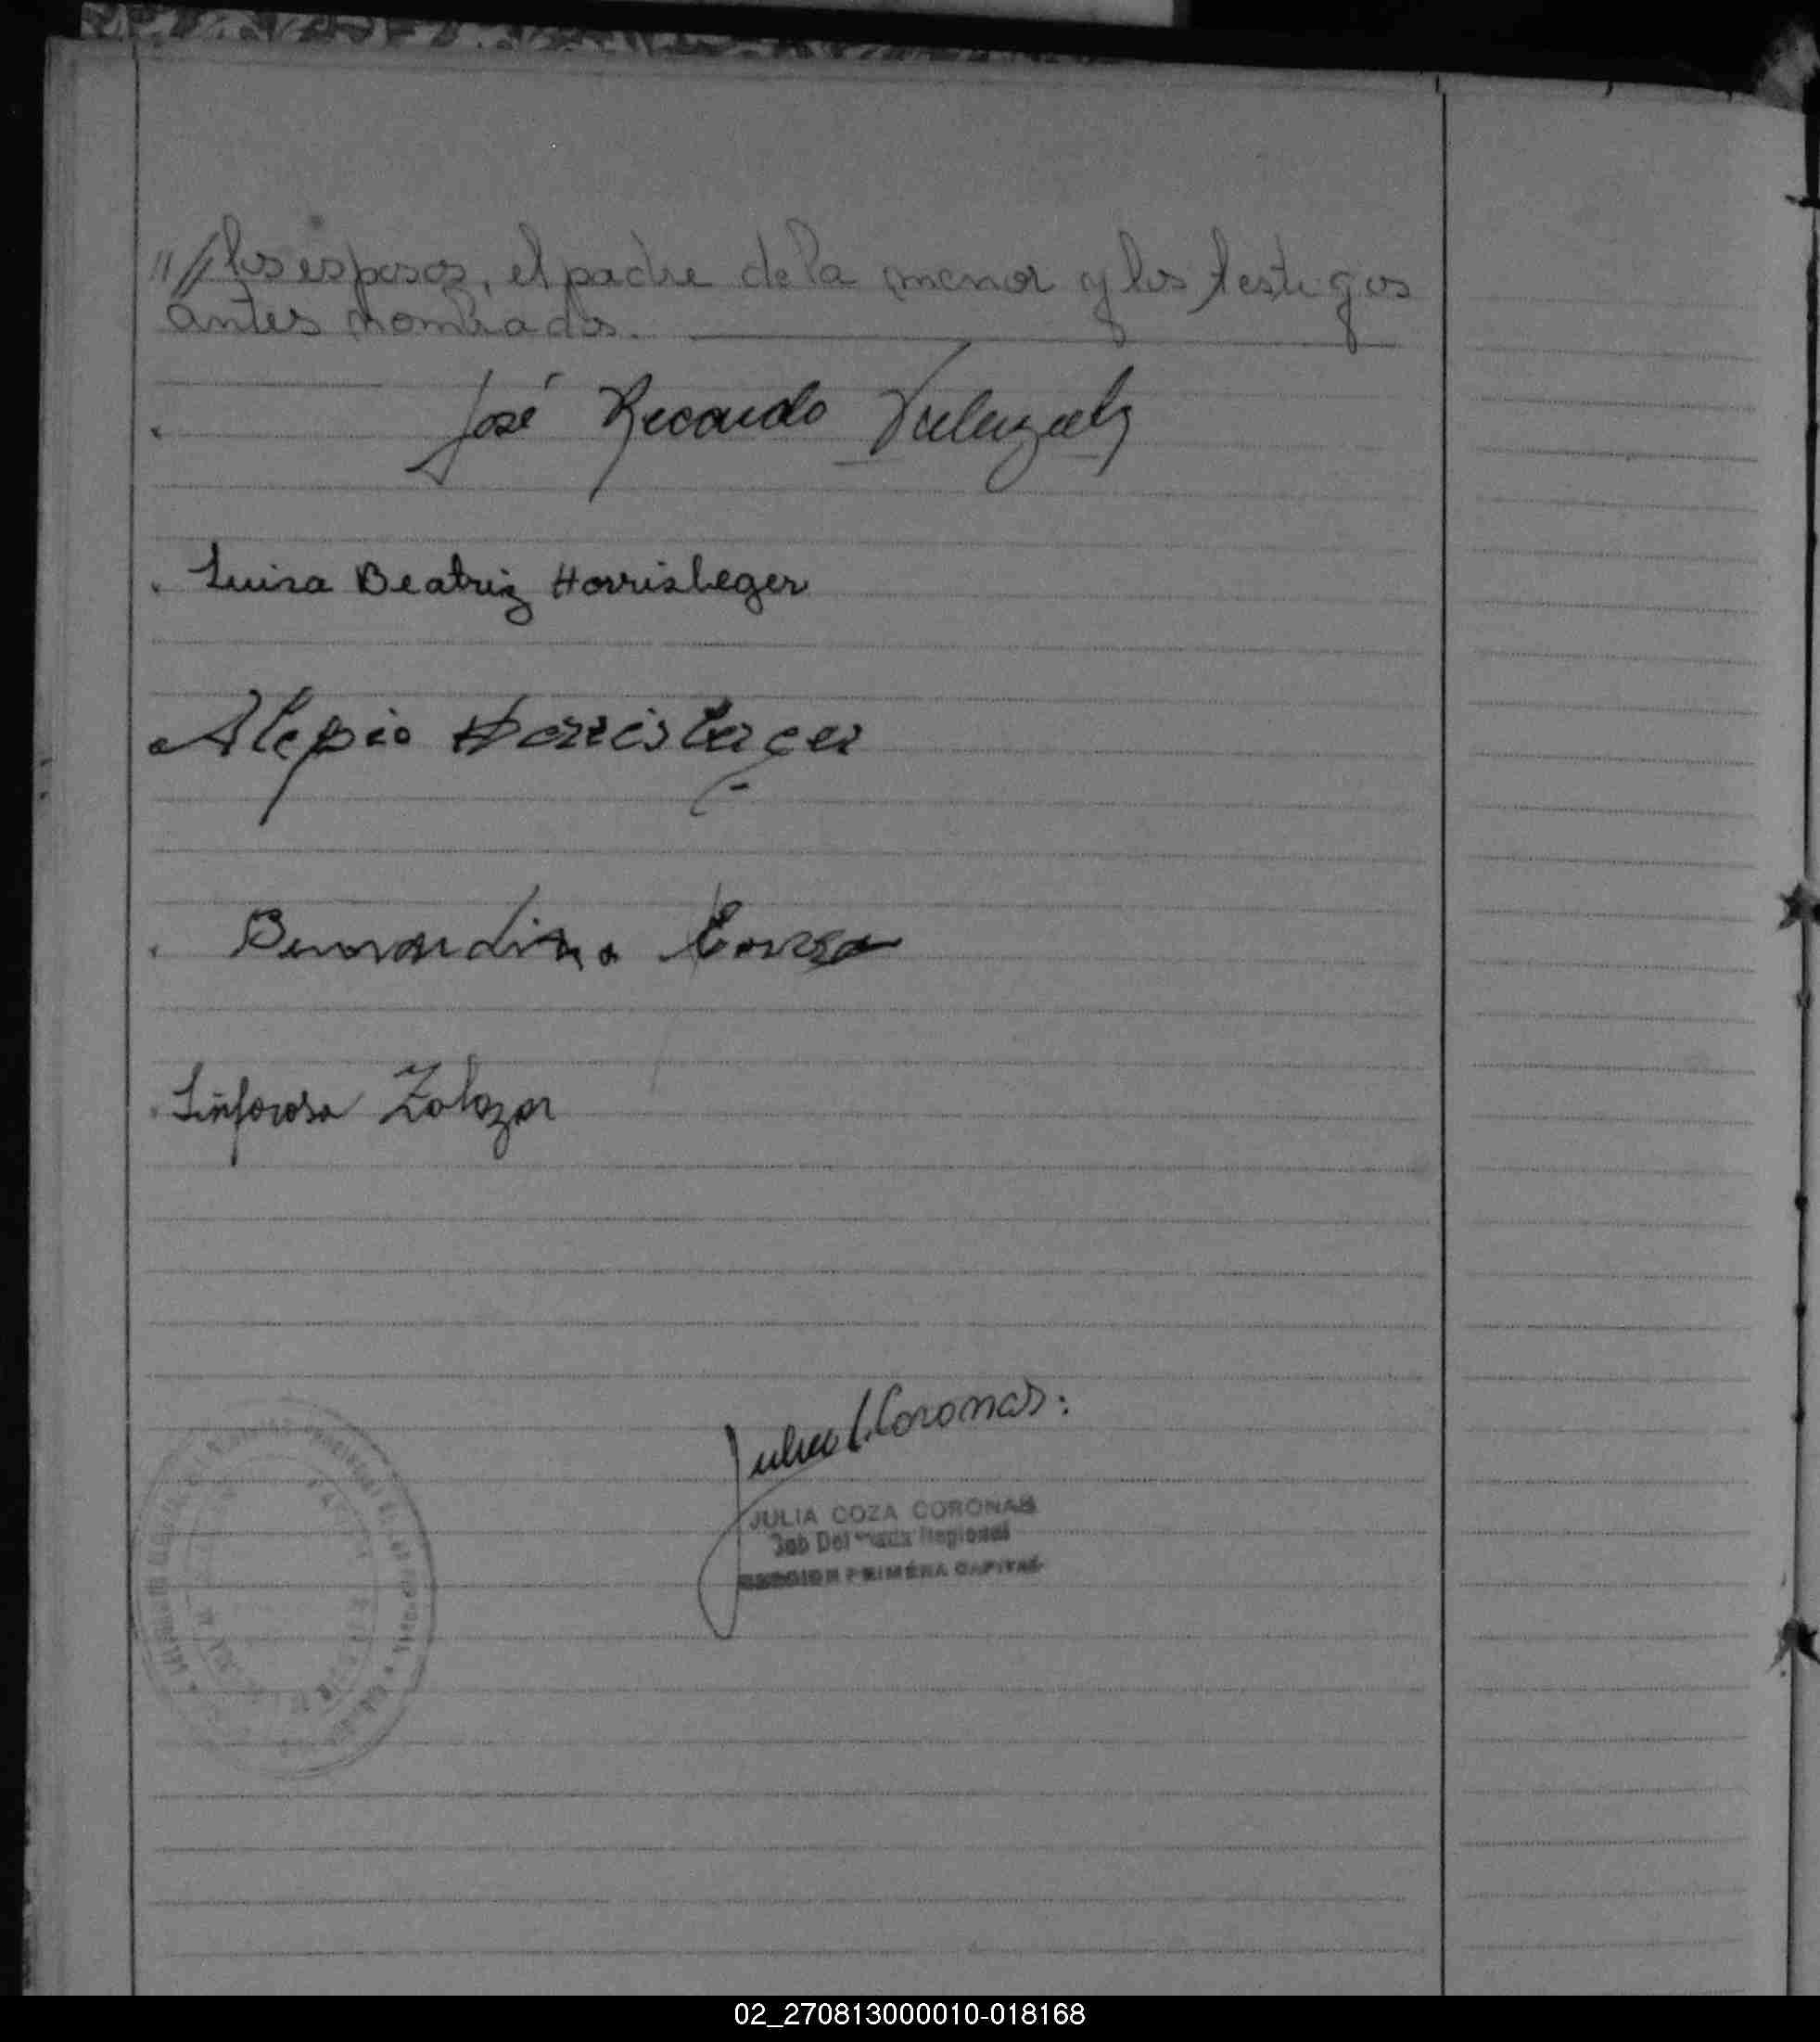 "// los esposos, el padre de la menor y los testigos
antes nombrados.
José Ricardo Valenzuela
Luisa Beatriz Horrisbeger
Alepio Horrisberger
Bernardino
Sinforosa Zalazar
Julia C. Coronas:
JULIA COZA CORONAS
Sub Delegada Regional
SECCION PRIMERA CAPITAL
02_270813000010-018168